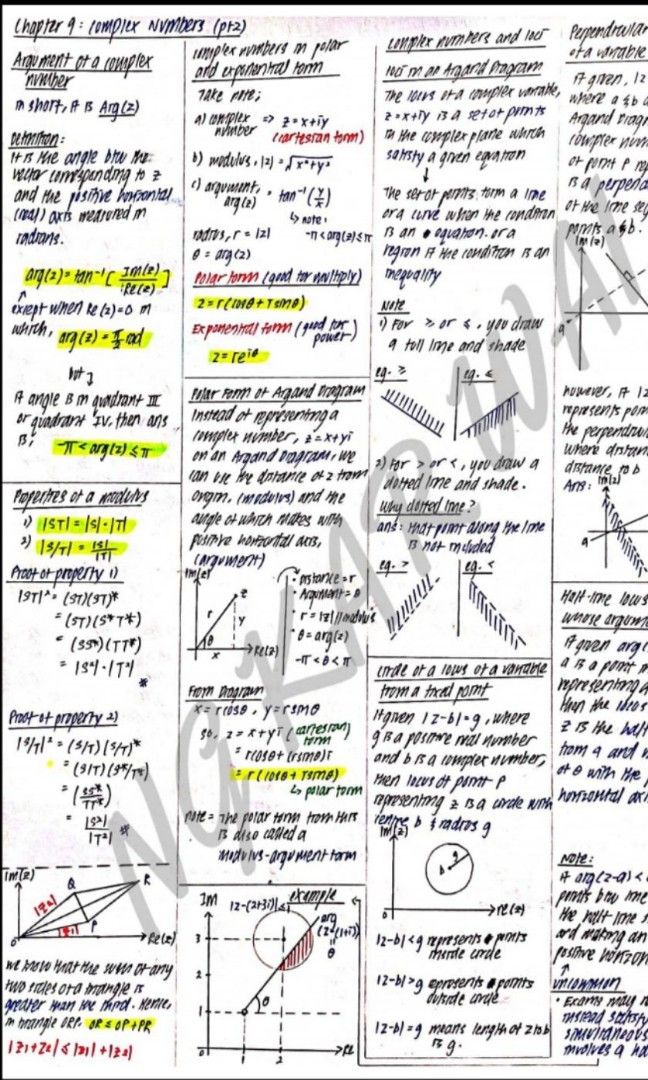 Chapter 9: Complex Numbers (pt2)
Argument of a complex
number
in short, it is Arg(z)
Definition:
It is the angle btw the
vector corresponding to z
and the positive horizontal
(real) axis measured in
radians.
arg(z) = tan⁻¹ [Im(z)/Re(z)]
except when Re(z)=0 in
which, arg(z) = π/2 rad
but
If angle is in quadrant III
or quadrant IV, then ans
is:
-π < arg(z) ≤ π
Properties of a modulus
1) |ST| = |S|·|T|
2) |S/T| = |S|/|T|
Proof of property 1)
|ST|² = (ST)(ST)*
= (ST)(S*T*)
= (SS*)(TT*)
= |S²|·|T²|
*
Proof of property 2)
|S/T|² = (S/T)(S/T)*
= (S/T)(S*/T*)
= (SS*/TT*)
= |S²|/|T²| *
Im(z)
Q
R
|z2|
P
|z1|
O
Re(z)
we know that the sum of any
two sides of a triangle is
greater than the third. Hence,
in triangle ORP, OR ≤ OP+PR
|z1+z2| ≤ |z1|+|z2|
complex numbers in polar
and exponential form
Take note;
a) complex number => z = x+iy
(cartesian form)
b) modulus, |z| = √x²+y²
c) argument, arg(z) = tan⁻¹(y/x)
↳ note:
-π<arg(z)≤π
radius, r = |z|
θ = arg(z)
Polar form (good for multiply)
z = r(cosθ + isinθ)
Exponential form (good for
power)
z = re^iθ
Polar form of Argand Diagram
Instead of representing a
complex number, z = x+yi
on an Argand Diagram, we
can use the distance of z from
origin, (modulus) and the
angle of which makes with
positive horizontal axis,
(argument)
Im(z)
z
r
y
θ
x
Re(z)
• Distance = r
• Argument = θ
• r = |z| // modulus
• θ = arg(z)
-π < θ < π
From Diagram
x = rcosθ, y = rsinθ
so, z = x+yi (cartesian
form)
= rcosθ + (rsinθ)i
= r(cosθ + isinθ)
↳ polar form
note = The polar form from this
is also called a
modulus-argument form
Im
example
|z-(2+3i)| ≤ 1
arg
(z-(1+i))
=
θ
3
2
1
θ
0
1
2
Re
Complex numbers and loci
loci in an Argand Diagram
The locus of a complex variable,
z = x+iy is a set of points
in the complex plane which
satisfy a given equation
↓
The set of points form a line
or a curve when the condition
is an equation. or a
region if the condition is an
inequality
Note
1) For ≥ or ≤, you draw
a full line and shade
eg. ≥
eg. ≤
2) For > or <, you draw a
dotted line and shade.
Why dotted line?
ans: that point along the line
is not included
eg. >
eg. <
Circle of a locus of a variable
from a fixed point
If given |z-b|=g, where
g is a positive real number
and b is a complex number,
then locus of point P
representing z is a circle with
centre b & radius g
Im(z)
g
b
re(z)
|z-b|<g represents points
inside circle
|z-b|>g represents points
outside circle
|z-b|=g means length of z to b
is g.
Perpendicular
of a variable
If given, |z
where a & b a
Argand Diagr
complex num
of point P rep
is a perpend
of the line seg
points a & b.
Im(z)
a
however, if |z
represents poin
the perpendicu
where distan
distance to b
Ans: Im(z)
a
Half-line locus
whose argume
If given arg(
a is a point in
representing a
then the locus
z is the half
from a and m
of θ with the
horizontal axi
Note:
if arg(z-a) <
points btw the
the half line
and making an
positive horizon
↑
uncommon
• Exams may n
instead satisfy
simultaneous
involves a ha
NG KAR WAI